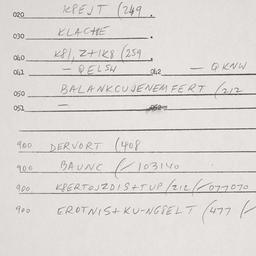 020 K8EJT (249.
030 KLACHE.
040 K81, Z+1K8 (259.
041 — QELSW 042 — QKNW
050 BALANKCUJENEMFERT (212
051 —
900 DERVORT (408
900 BAUNC (/103140
900 K8ERTOJZDIS+TUP/212(/077070
900 EROTNIS+KU-NG8ELT (477 (/